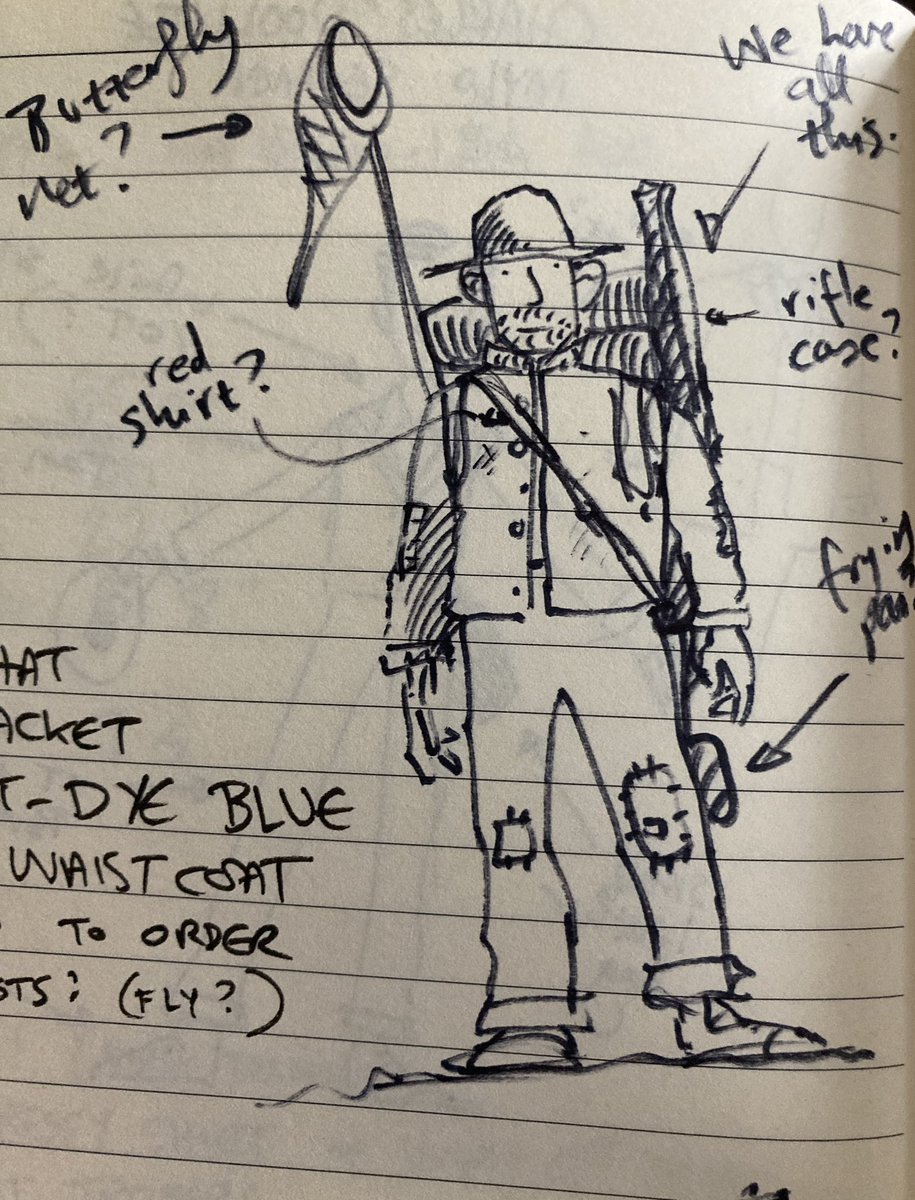 Butterfly
net?
We have
all
this.
rifle
case?
red
shirt?
frying
pan?
HAT
ACKET
T-DYE BLUE
WAISTCOAT
TO ORDER
STS: (FLY?)